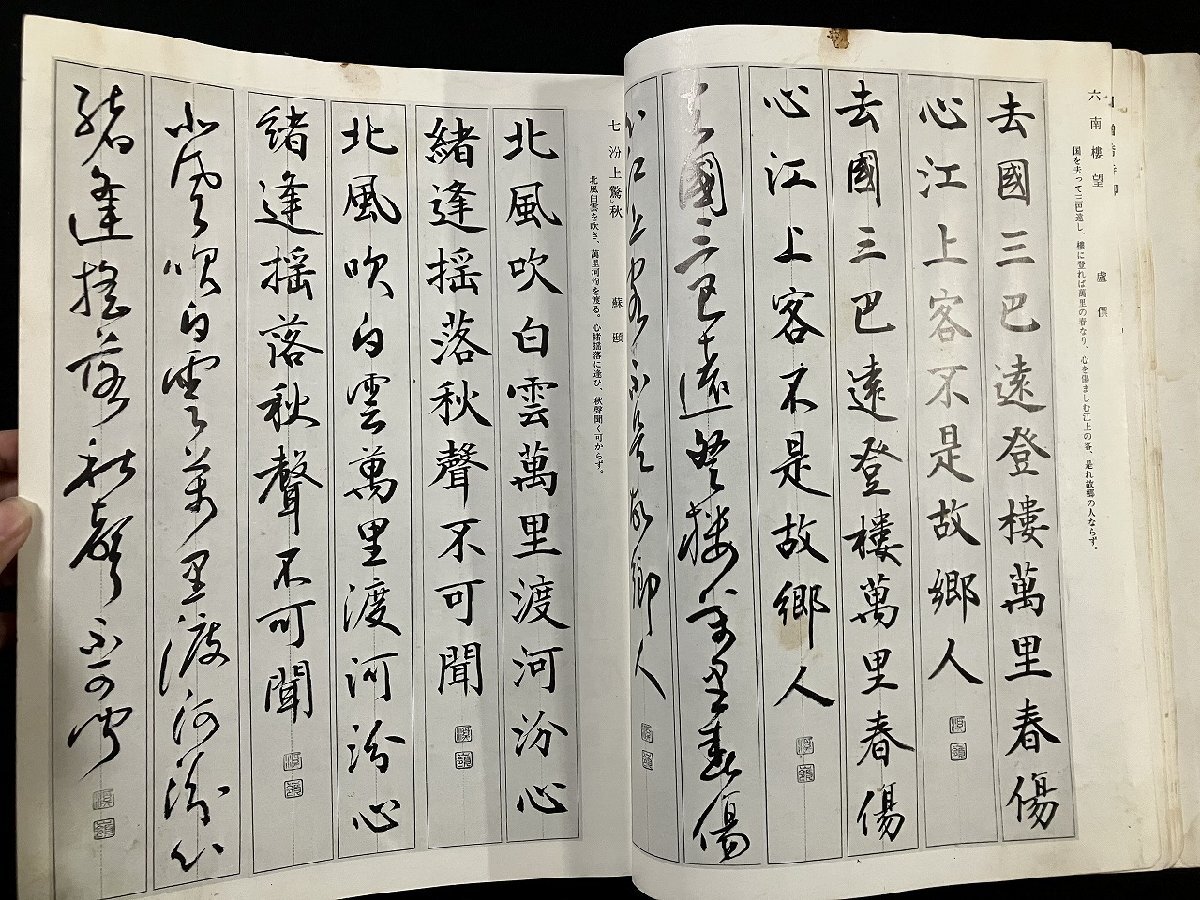 六 南樓望 盧僎
国を去って三巴遠し、樓に登れば萬里の春なり、心を傷ましむ江上の客、是れ故郷の人ならず。
去國三巴遠登樓萬里春傷
心江上客不是故郷人
去國三巴遠登樓萬里春傷
心江上客不是故郷人
去國三巴遠登樓萬里春傷
心江上客不是故郷人
七 汾上驚秋 蘇頲
北風白雲を吹き、萬里河汾を渡る。心緒揺落に逢ひ、秋聲聞く可からず。
北風吹白雲萬里渡河汾心
緒逢揺落秋聲不可聞
北風吹白雲萬里渡河汾心
緒逢揺落秋聲不可聞
北風吹白雲萬里渡河汾心
緒逢揺落秋聲不可聞